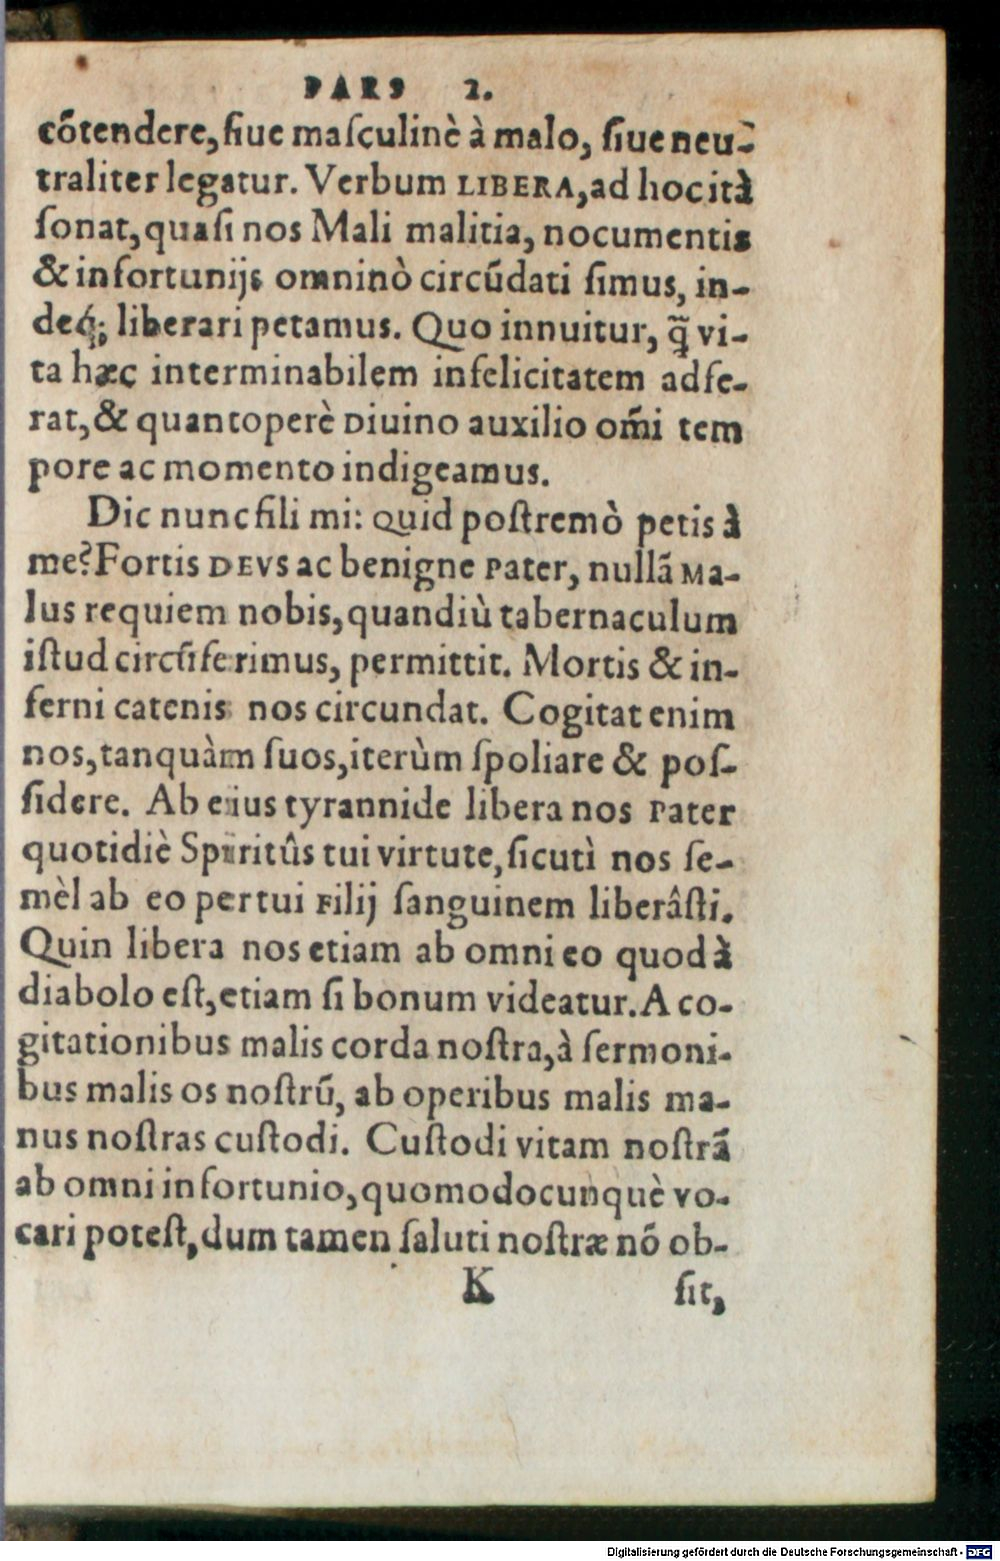 PARS 2.
cõtendere, ſiue maſculinè à malo, ſiue neu-
traliter legatur. Verbum LIBERA, ad hoc ità
ſonat, quaſi nos Mali malitia, nocumentis
& infortunijs omninò circũdati ſimus, in-
deq́; liberari petamus. Quo innuitur, q̃ vi-
ta hæc interminabilem infelicitatem adfe-
rat, & quantoperè Diuino auxilio om̃i tem
pore ac momento indigeamus.
Dic nunc fili mi: quid poſtremò petis à
me? Fortis DEVS ac benigne Pater, nullã Ma-
lus requiem nobis, quandiù tabernaculum
iſtud circũferimus, permittit. Mortis & in-
ferni catenis nos circundat. Cogitat enim
nos, tanquàm ſuos, iterùm ſpoliare & poſ-
ſidere. Ab eius tyrannide libera nos Pater
quotidiè Spiritûs tui virtute, ſicutì nos ſe-
mèl ab eo per tui Filij ſanguinem liberâſti.
Quin libera nos etiam ab omni eo quod à
diabolo eſt, etiam ſi bonum videatur. A co-
gitationibus malis corda noſtra, à ſermoni-
bus malis os noſtrũ, ab operibus malis ma-
nus noſtras cuſtodi. Cuſtodi vitam noſtrã
ab omni infortunio, quomodocunquè vo-
cari poteſt, dum tamen ſaluti noſtræ nõ ob-
K ſit,
Digitalisierung gefördert durch die Deutsche Forschungsgemeinschaft - DFG